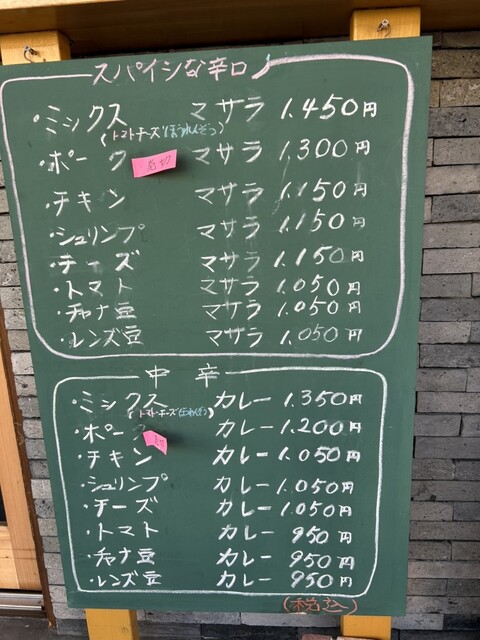 スパイシな辛口
・ミックス マサラ 1.450円
(トマトチーズほうれんそう)
・ポーク 品切 マサラ 1.300円
・チキン マサラ 1.150円
・シュリンプ マサラ 1.150円
・チーズ マサラ 1.150円
・トマト マサラ 1.050円
・チャナ豆 マサラ 1.050円
・レンズ豆 マサラ 1.050円
中辛
・ミックス カレー 1.350円
(トマト・チーズほうれんそう)
・ポーク カレー 1.200円
・チキン カレー 1.050円
・シュリンプ カレー 1.050円
・チーズ カレー 1.050円
・トマト カレー 950円
・チャナ豆 カレー 950円
・レンズ豆 カレー 950円
(税込)